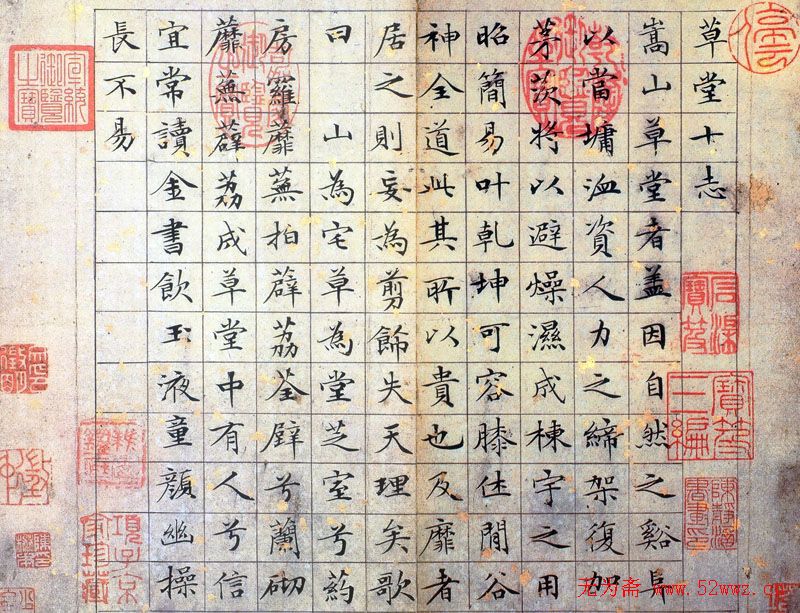 草堂十志
嵩山草堂者盖因自然之谿阜
以當墉洫資人力之締架復加
茅茨將以避燥濕成棟宇之用
昭簡易叶乾坤可容膝休閒谷
神全道此其所以貴也及靡者
居之則妄為剪飾失天理矣歌
曰 山為宅草為堂芝室兮葯
房羅蘼蕪拍薜荔荃壁兮蘭砌
蘼蕪薜荔成草堂中有人兮信
宜常讀金書飲玉液童顏幽操
長不易
宣統御覽之寶
石渠寶笈
寶笈三編
項子京家珍藏
无为斋 www.52wwz.c